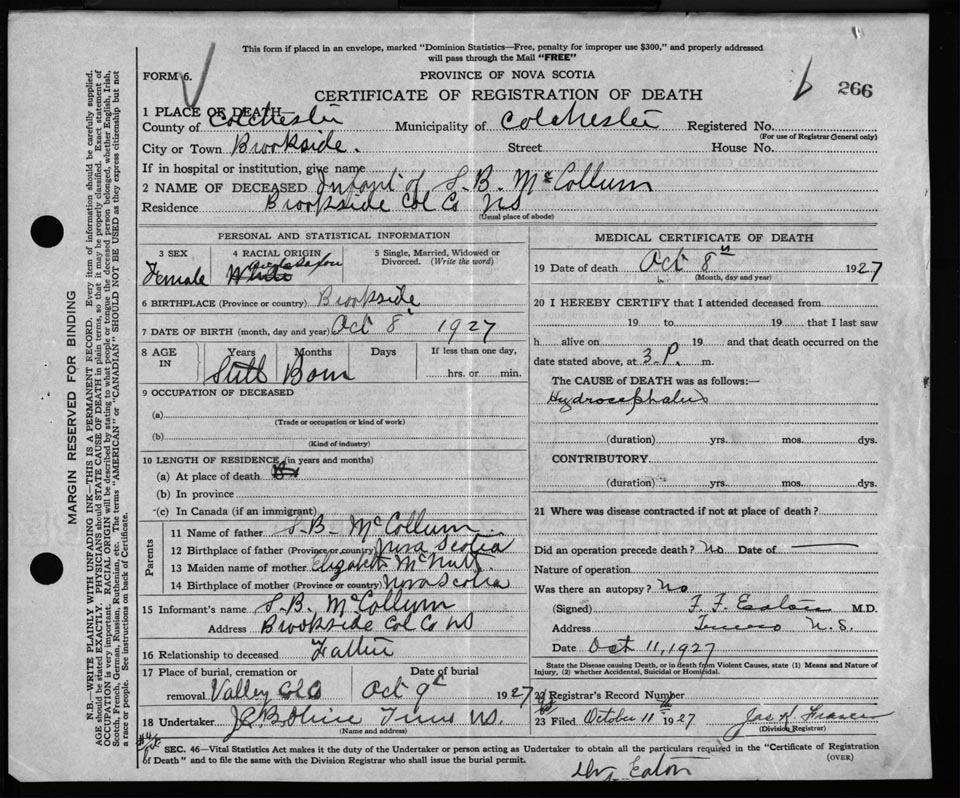 This form if placed in an envelope, marked "Dominion Statistics—Free, penalty for improper use $300," and properly addressed
will pass through the Mail "FREE"
FORM 6.
PROVINCE OF NOVA SCOTIA
266
CERTIFICATE OF REGISTRATION OF DEATH
1 PLACE OF DEATH
County of Colchester Municipality of Colchester Registered No.
(For use of Registrar General only)
City or Town Brookside. Street House No.
If in hospital or institution, give name
2 NAME OF DECEASED Infant of S. B. McCollum
Residence Brookside Col Co NS
(Usual place of abode)
PERSONAL AND STATISTICAL INFORMATION
3 SEX 4 RACIAL ORIGIN 5 Single, Married, Widowed or Divorced. (Write the word)
Female White
6 BIRTHPLACE (Province or country) Brookside
7 DATE OF BIRTH (month, day and year) Oct 8 1927
8 AGE IN Years Months Days If less than one day,
hrs. or min.
Still Born
9 OCCUPATION OF DECEASED
(a)
(Trade or occupation or kind of work)
(b)
(Kind of industry)
10 LENGTH OF RESIDENCE (in years and months)
(a) At place of death
(b) In province
(c) In Canada (if an immigrant)
Parents
11 Name of father S. B. McCollum
12 Birthplace of father (Province or country) Nova Scotia
13 Maiden name of mother Elizabeth McNutt
14 Birthplace of mother (Province or country) Nova Scotia
15 Informant's name S. B. McCollum
Address Brookside Col Co NS
16 Relationship to deceased Father
17 Place of burial, cremation or removal Date of burial
Valley Col Co Oct 9 1927
18 Undertaker Truro NS.
(Name and address)
MEDICAL CERTIFICATE OF DEATH
19 Date of death Oct 8th 1927
(Month, day and year)
20 I HEREBY CERTIFY that I attended deceased from
19 to 19 that I last saw
h alive on 19 and that death occurred on the
date stated above, at 3 P. m.
The CAUSE OF DEATH was as follows:—
Hydrocephalus
(duration) yrs. mos. dys.
CONTRIBUTORY
(duration) yrs. mos. dys.
21 Where was disease contracted if not at place of death?
Did an operation precede death? No. Date of
Nature of operation
Was there an autopsy? No
(Signed) F. F. Eaton M.D.
Address Truro N.S.
Date Oct 11, 1927
State the Disease causing Death, or in death from Violent Causes, state (1) Means and Nature of
Injury, (2) whether Accidental, Suicidal or Homicidal.
22 Registrar's Record Number
23 Filed October 11 1927 Jas H Francis
(Division Registrar)
SEC. 46—Vital Statistics Act makes it the duty of the Undertaker or person acting as Undertaker to obtain all the particulars required in the "Certificate of Registration
of Death" and to file the same with the Division Registrar who shall issue the burial permit.
(OVER)
Eaton
MARGIN RESERVED FOR BINDING
N.B.—WRITE PLAINLY WITH UNFADING INK—THIS IS A PERMANENT RECORD. Every item of information should be carefully supplied.
AGE should be stated EXACTLY. PHYSICIANS should STATE CAUSE OF DEATH in plain terms, so that it may be properly classified. Exact statement of
OCCUPATION is very important. RACIAL ORIGIN will be described by stating to what people or tongue the deceased person belonged, whether English, Irish,
Scotch, French, German, Russian, Ruthenian, etc. The terms "AMERICAN" or "CANADIAN" SHOULD NOT BE USED as they express citizenship but not
a race or people. See instructions on back of Certificate.